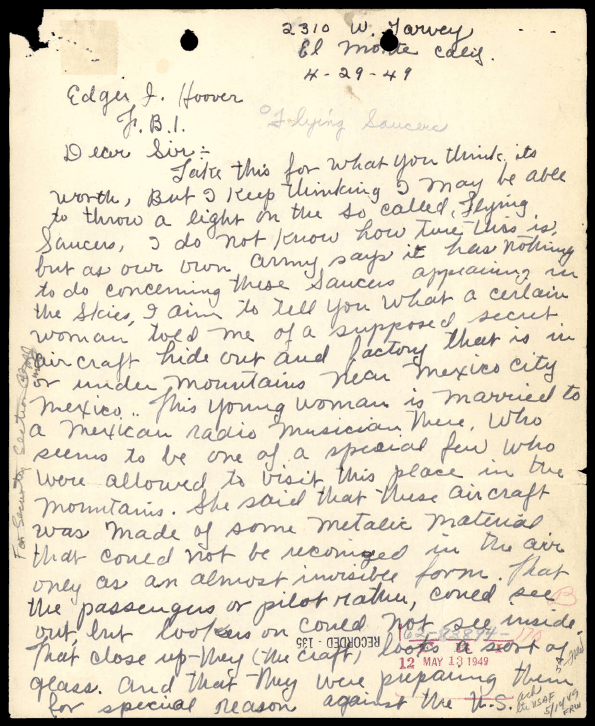 2310 W. Garvey
El Monte Calif.
4-29-49
Edger J. Hoover
F.B.I.
"Flying Saucers
Dear Sir:-
Take this for what you think, its
worth, But I Keep thinking I may be able
to throw a light on the so called, Flying
Saucers, I do not know how true this is,
but as our own army says it has nothing
to do concerning these Saucers appearing in
the Skies, I aim to tell you what a certain
woman told me of a supposed secret
air craft hide out and factory that is in
or under mountains near Mexico city
Mexico.. This young woman is married to
a Mexican radio musician there, Who
seems to be one of a special few who
were allowed to visit this place in the
Mountains. She said that these air craft
was made of some Metalic Material
that could not be reconized in the air
only as an almost invisible form. That
the passengers or pilot rather, could see
out, but lookers on could not see inside.
That close up-they (the craft) looks a sort of
glass. and that they were preparing them
for special reason against the U.S.
For Security Section
RECORDED - 135
62-83894-
12 MAY 13 1949
ack
5/14/49